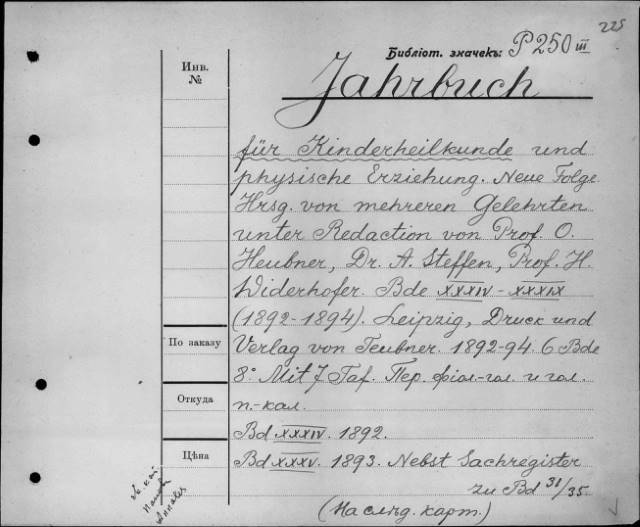 225
Библіот. значекъ: P 250 III
Инв.
№
Jahrbuch
für Kinderheilkunde und
physische Erziehung. Neue Folge
Hrsg. von mehreren Gelehrten
unter Redaction von Prof. O.
Heubner, Dr. A. Steffen, Prof. H.
Widerhofer. Bde XXXIV-XXXIX
(1892-1894). Leipzig, Druck und
По заказу
Verlag von Teubner. 1892-94. 6 Bde
8° Mit 7 Taf. Пер. фіол-гол. и гол.
Откуда
п.-кал.
Bd XXXIV. 1892.
Цѣна
Bd XXXV. 1893. Nebst Sachregister
zu Bd 31/35.
(На слѣд. карт.)